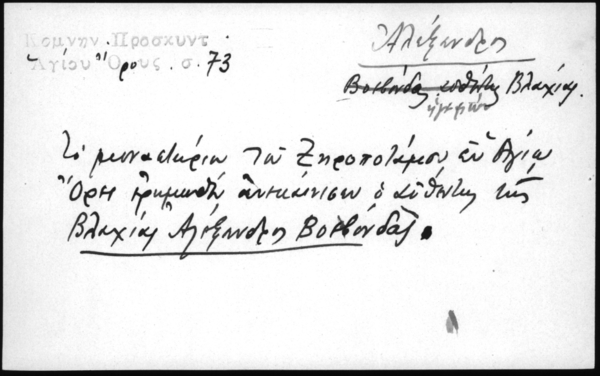 Κομνην. Προσκυντ.
Ἁγίου Ὄρους σ. 73
Ἀλέξανδρος
Βοεβόνδας αὐθέντης Βλαχίας.
ἡγεμών
Τὸ μοναστήριον τοῦ Ξηροποτάμου ἐν Ἁγίῳ
Ὄρει ἐρημωθὲν ἀνεκαίνισεν ὁ αὐθέντης τῆς
Βλαχίας Ἀλέξανδρος Βοεβόνδας.